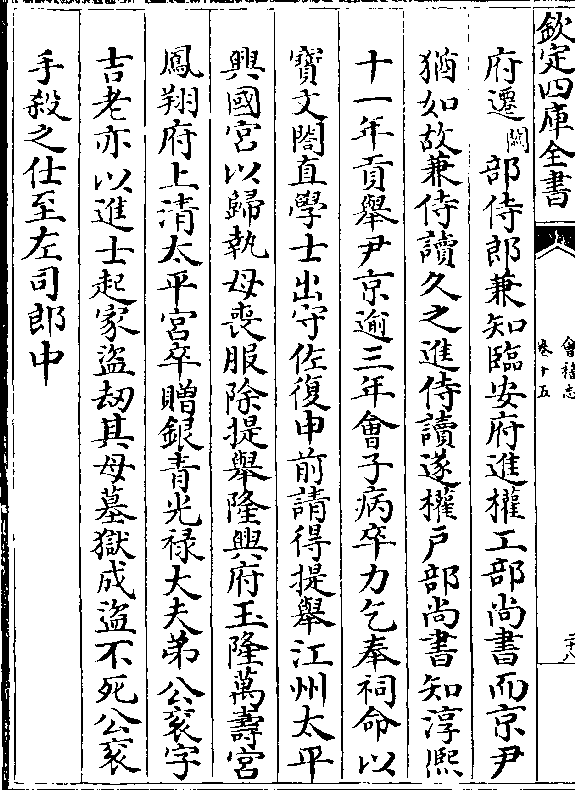 欽定四庫全書
會稽志
卷十五
二十八
府遷闕部侍郎兼知臨安府進權工部尚書而京尹
猶如故兼侍讀久之進侍讀遂權戶部尚書知淳熙
十一年貢舉尹京逾三年會子病卒力乞奉祠命以
寶文閣直學士出守佐復申前請得提舉江州太平
興國宮以歸執母喪服除提舉隆興府玉隆萬壽宮
鳳翔府上清太平宮卒贈銀青光祿大夫弟公袞字
吉老亦以進士起家盜劫其母墓獄成盜不死公袞
手殺之仕至左司郎中